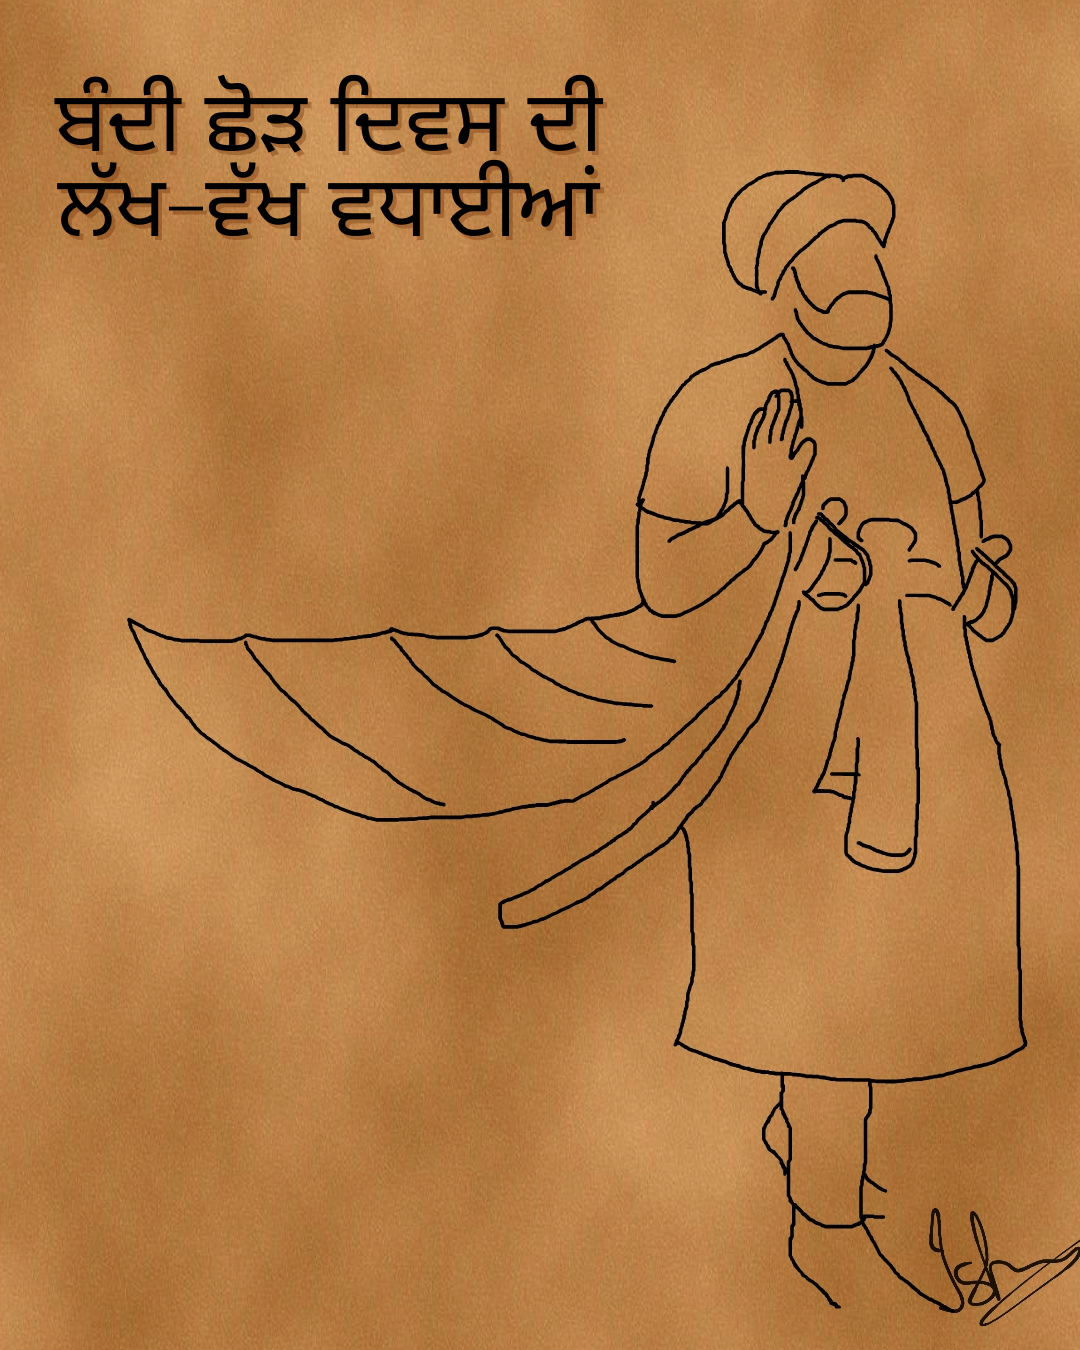 ਬੰਦੀ ਛੋੜ ਦਿਵਸ ਦੀ
ਲੱਖ-ਵੱਖ ਵਧਾਈਆਂ